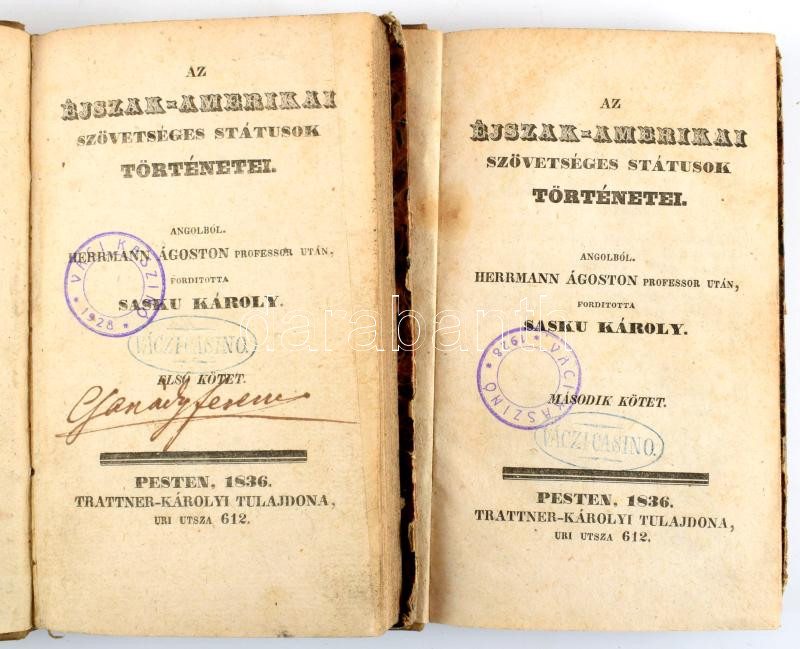 AZ
ÉJSZAK=AMERIKAI
SZÖVETSÉGES STÁTUSOK
TÖRTÉNETEI.
ANGOLBÓL.
HERRMANN ÁGOSTON PROFESSOR UTÁN,
FORDITOTTA
SASKU KÁROLY.
VÁCI KASZINO
* 1928 *
VÁCZI CASINO.
ELSŐ KÖTET.
Csanády Ferenc
PESTEN, 1836.
TRATTNER-KÁROLYI TULAJDONA,
URI UTSZA 612.
AZ
ÉJSZAK=AMERIKAI
SZÖVETSÉGES STÁTUSOK
TÖRTÉNETEI.
ANGOLBÓL.
HERRMANN ÁGOSTON PROFESSOR UTÁN,
FORDITOTTA
SASKU KÁROLY.
VÁCI KASZINO
* 1928 *
MÁSODIK KÖTET.
VÁCZI CASINO.
PESTEN, 1836.
TRATTNER-KÁROLYI TULAJDONA,
URI UTSZA 612.
darabanth